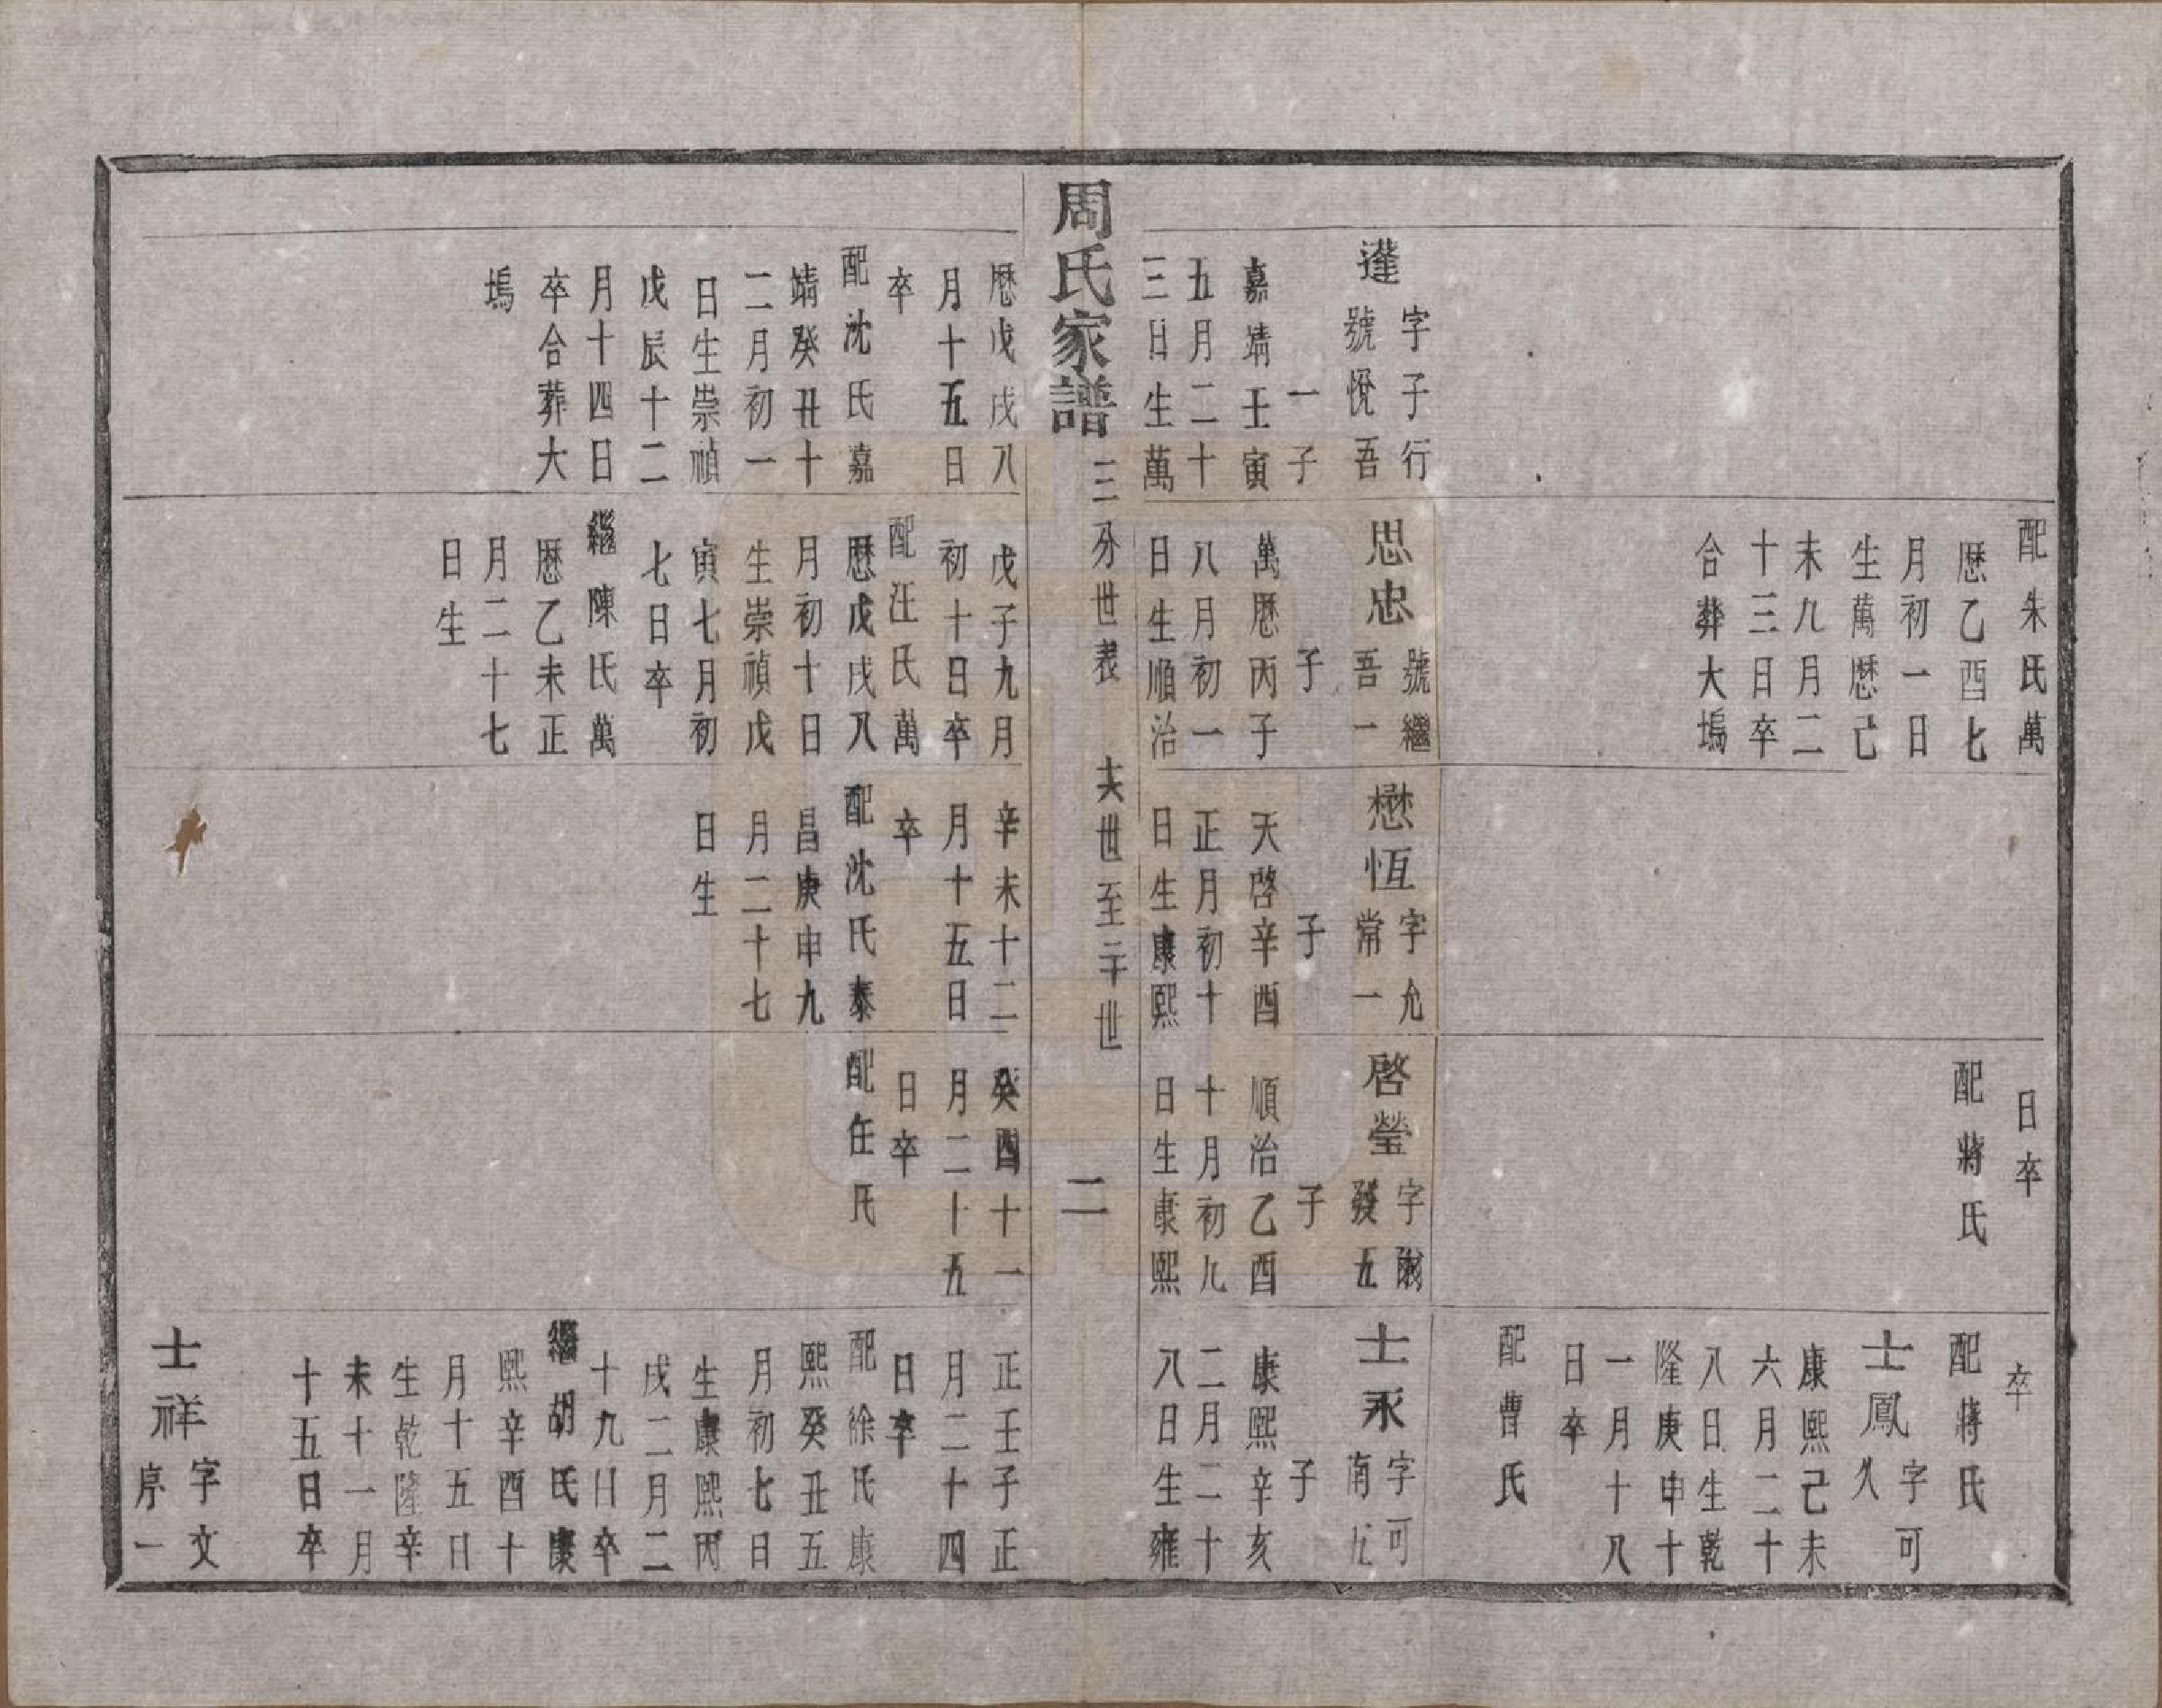 配朱氏萬
歷乙酉七
月初一日
生萬歷己
未九月二
十三日卒
合葬大塢
日卒
配蔣氏
卒
配蔣氏
士鳳
字可
久
康熙己未
六月二十
八日生乾
隆庚申十
一月十八
日卒
配曹氏
字子行
號悅吾
一子
嘉靖壬寅
五月二十
三日生萬
思忠
號繼
吾一
子
萬歷丙子
八月初一
日生順治
懋恆
字允
常一
子
天啓辛酉
正月初十
日生康熙
啓瑩
字爾
發五
子
順治乙酉
十月初九
日生康熙
士永
字可
南九
子
康熙辛亥
二月二十
八日生雍
周氏家譜
三分世表
六世至二十世
二
歷戊戌八
月十五日
卒
配沈氏嘉
靖癸丑十
二月初一
日生崇禎
戊辰十二
月十四日
卒合葬大
塢
戊子九月
初十日卒
配汪氏萬
歷戊戌八
月初十日
生崇禎戊
寅七月初
七日卒
繼陳氏萬
歷乙未正
月二十七
日生
辛未十二
月十五日
卒
配沈氏泰
昌庚申九
月二十七
日生
癸酉十一
月二十五
日卒
配任氏
正壬子正
月二十四
日卒
配徐氏康
熙癸丑五
月初七日
生康熙丙
戌二月二
十九日卒
繼胡氏康
熙辛酉十
月十五日
生乾隆辛
未十一月
十五日卒
士祥
字文
序一